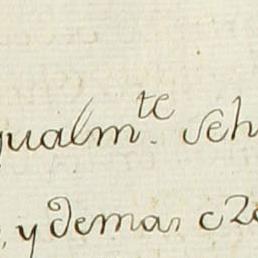 qualm.te seh
y demas c